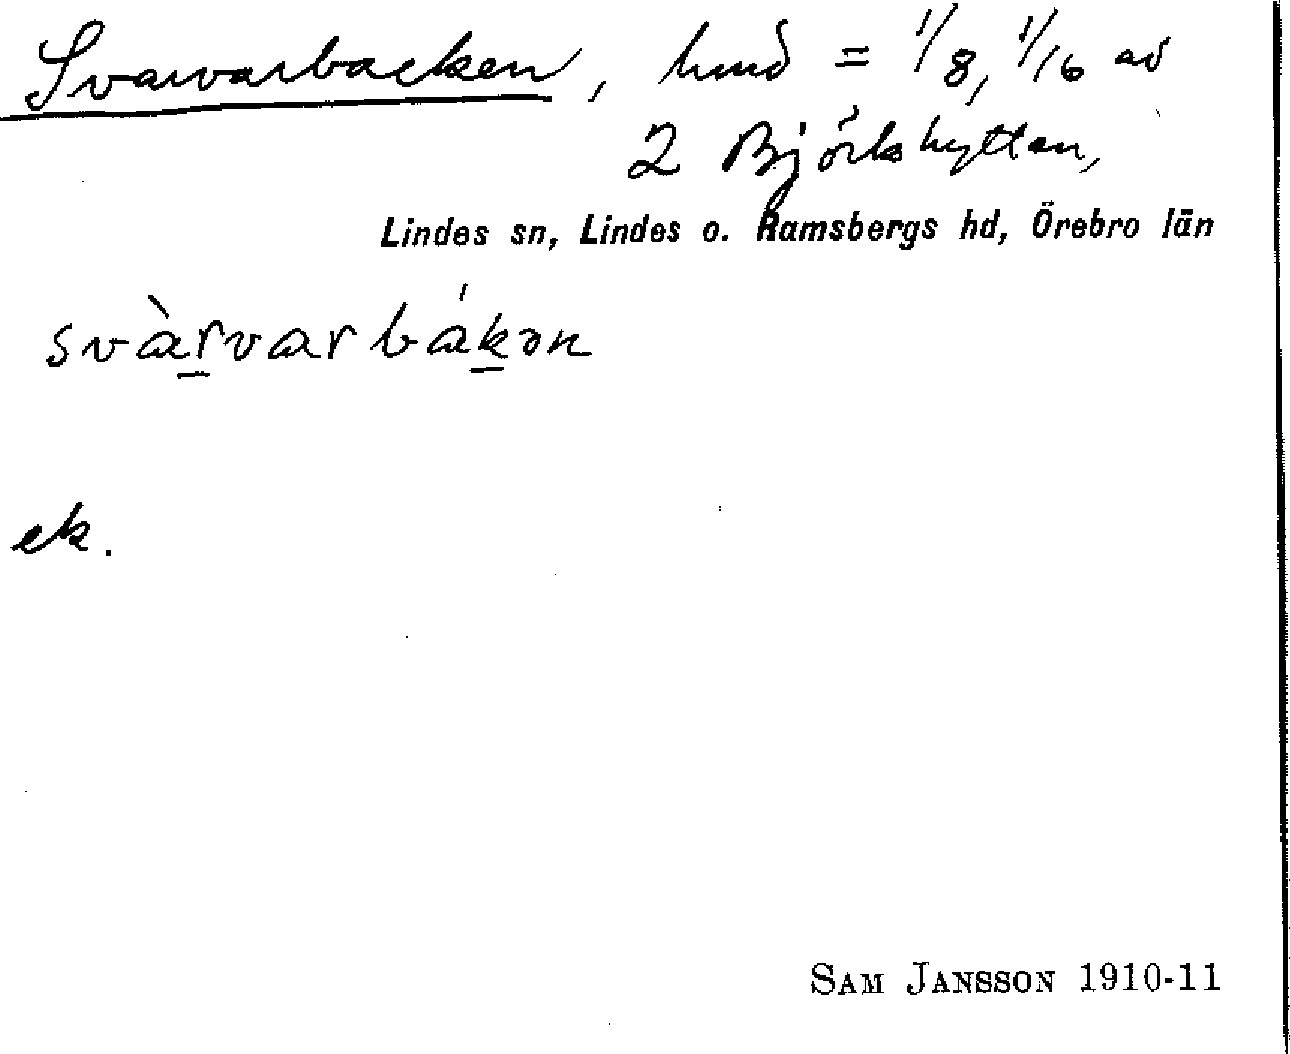 Svarvarbacken, hmd = 1/8, 1/16 av
2 Björkhyttan,
Lindes sn, Lindes o. Ramsbergs hd, Örebro län
svàrvarbákən
ek.
SAM JANSSON 1910-11